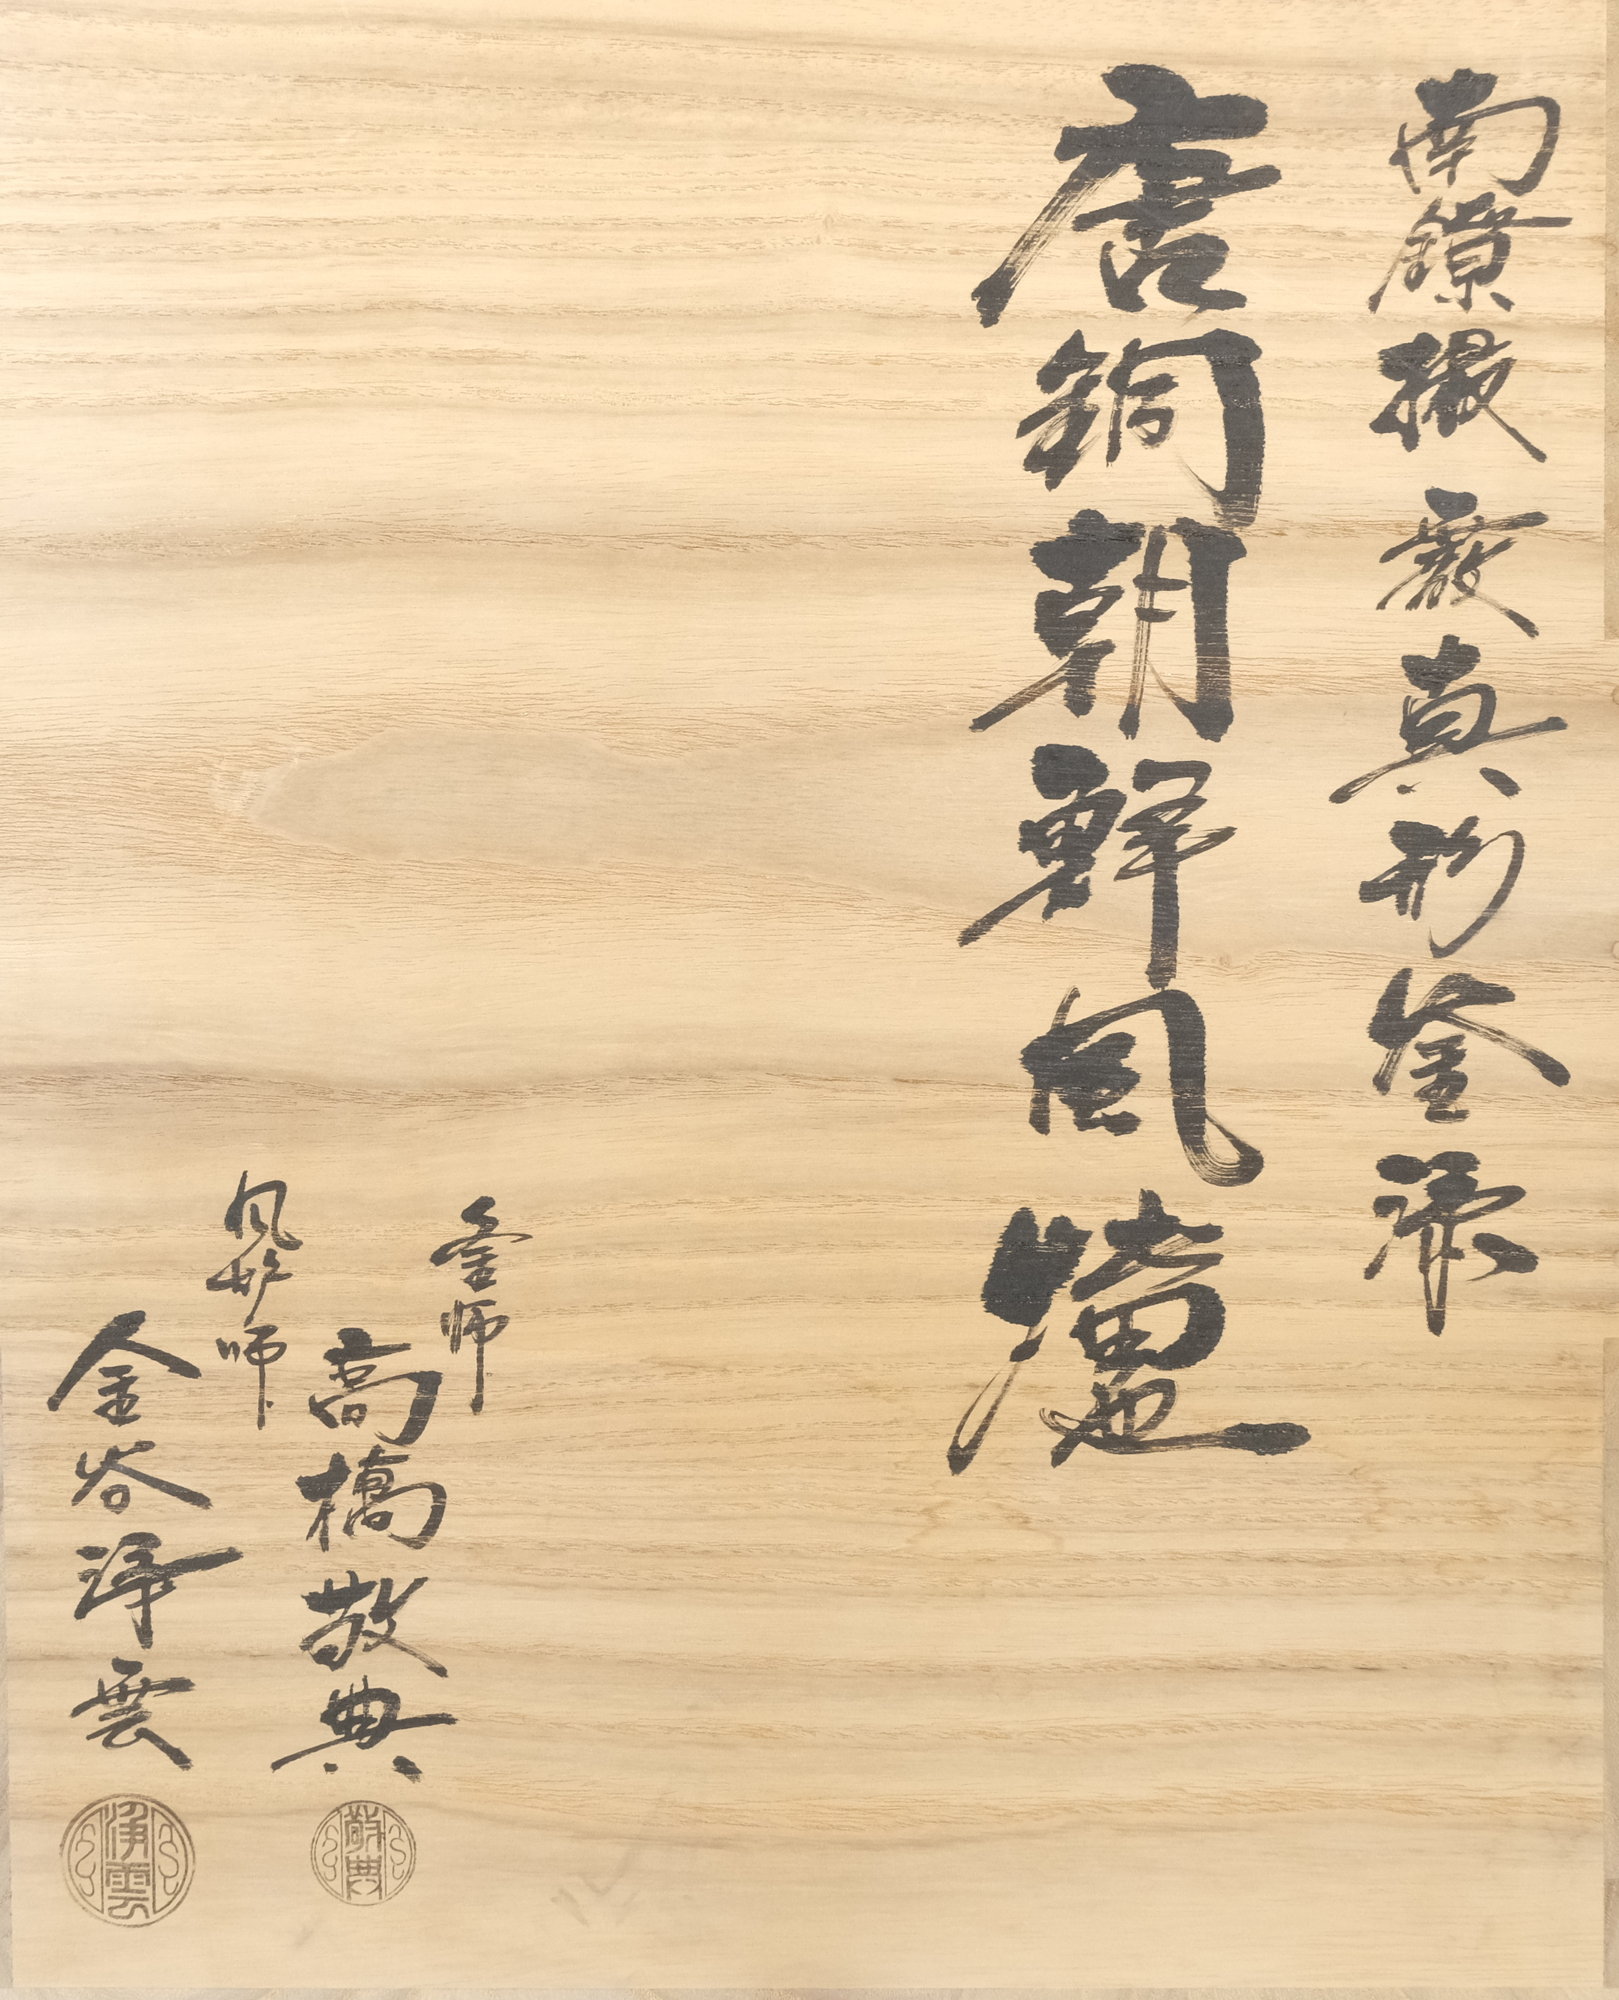 南鐐撮霰真形釜添
唐銅朝鮮風爐
釜師
高橋敬典
風炉師
金谷浄雲
敬典
浄雲